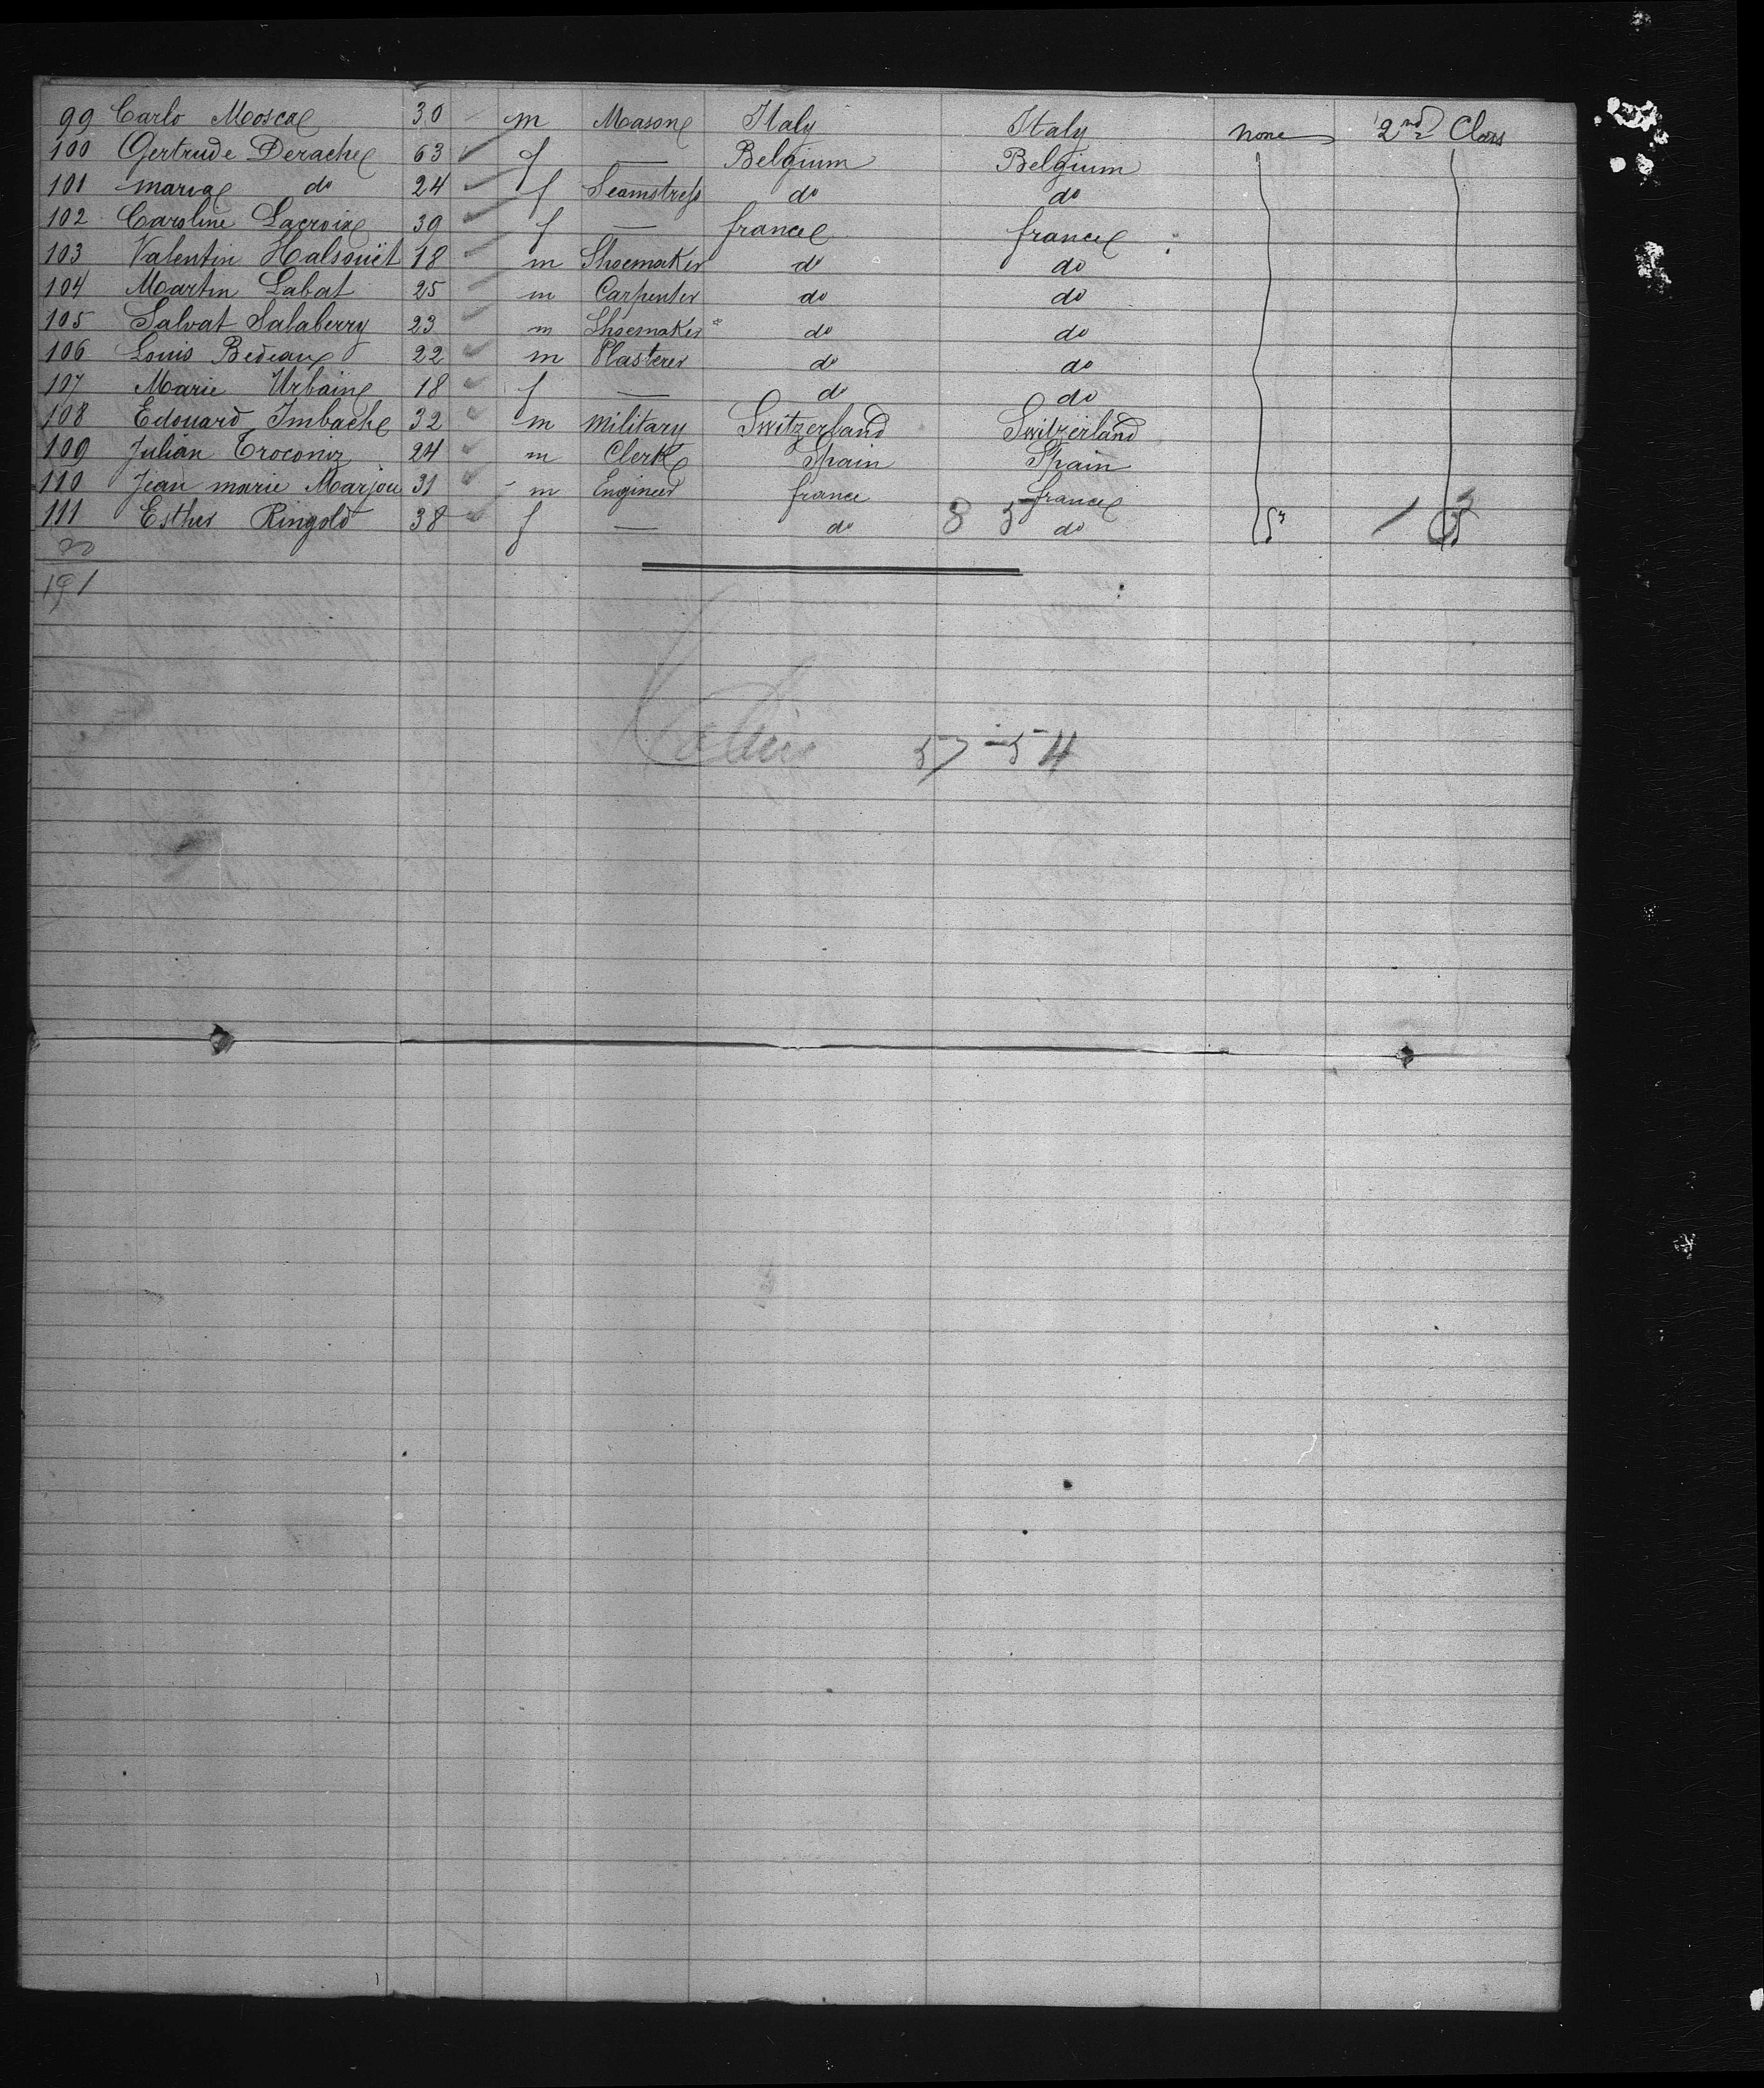 99 Carlo Mosca 30 m Mason Italy Italy none 2nd Class
100 Gertrude Derache 63 f — Belgium Belgium
101 maria do 24 f Seamstress do do
102 Caroline Lacroix 39 f — france france
103 Valentin Halsouët 18 m Shoemaker do do
104 Martin Labat 25 m Carpenter do do
105 Salvat Salaberry 23 m Shoemaker do do
106 Louis Bedeau 22 m Plasterer do do
107 Marie Urbain 18 f — do do
108 Edouard Imbach 32 m military Switzerland Switzerland
109 Julian Troconiz 24 m Clerk Spain Spain
110 Jean marie Marjou 31 m Engineer france france
111 Esther Ringold 38 f — do 8 5 do
191
57-54